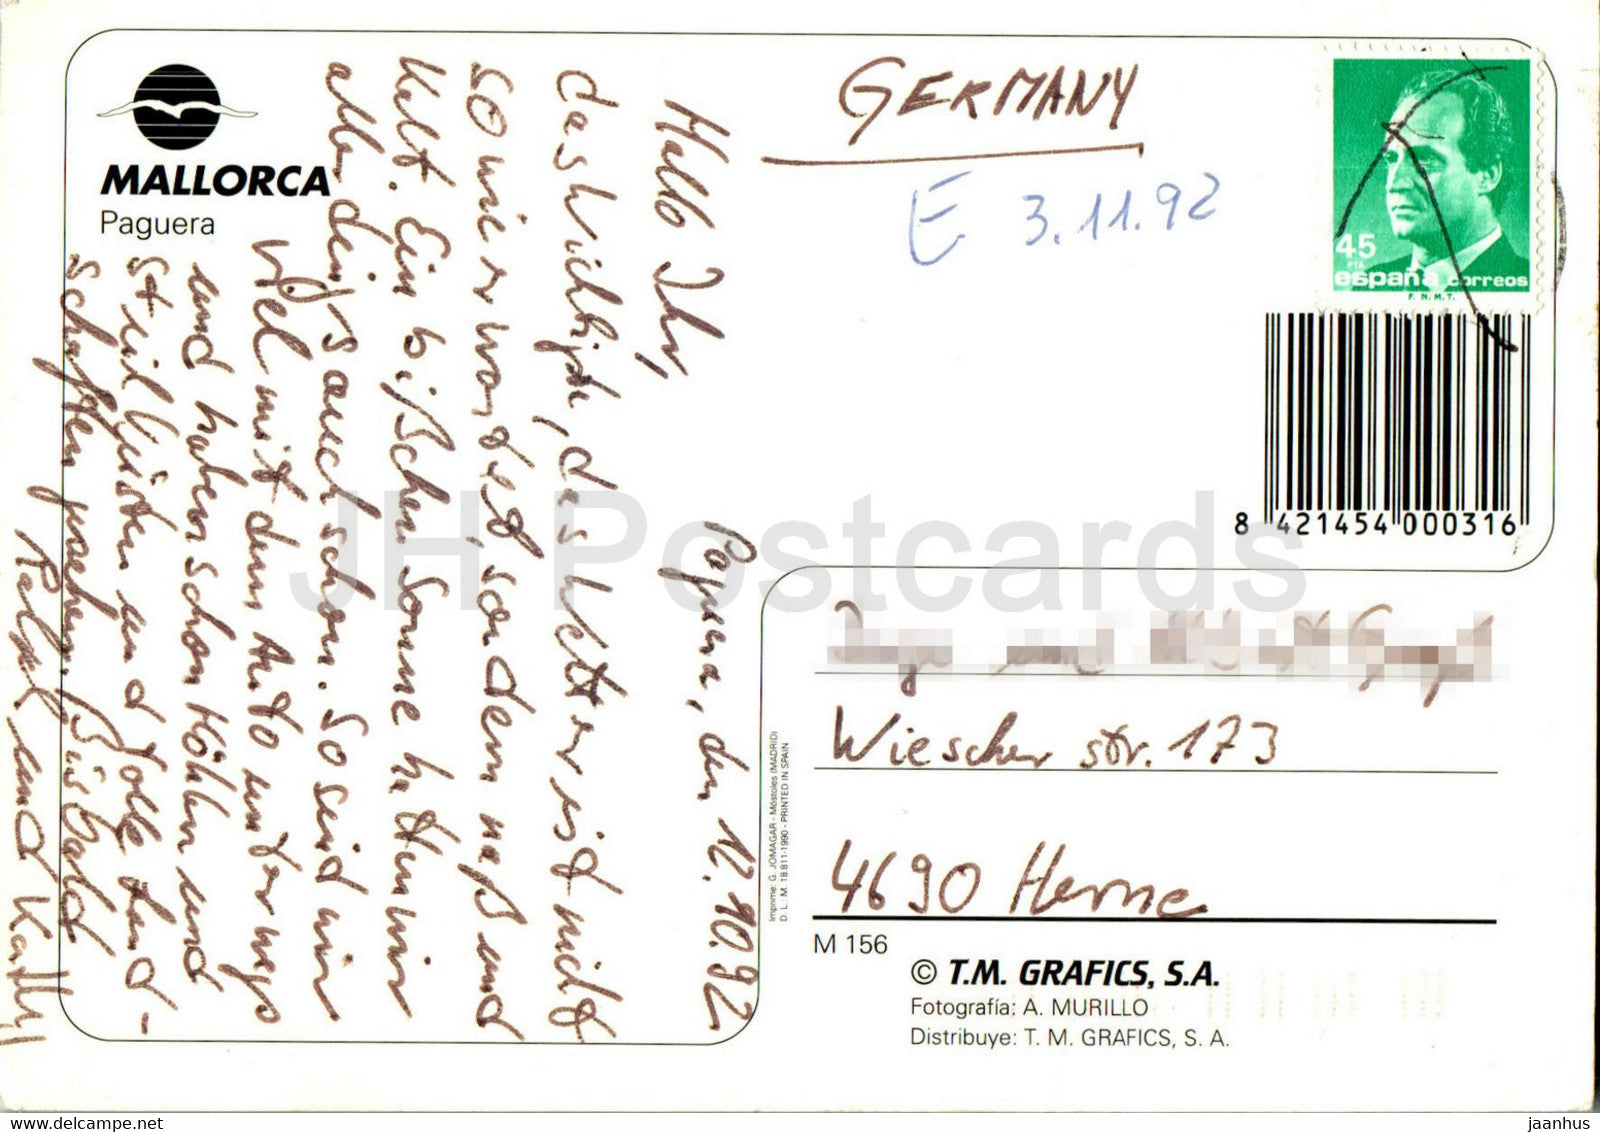 MALLORCA
Paguera
GERMANY
E 3.11.92
45
PTA
españa correos
F. N. M. T.
8 421454 000316
Paguera, den 12.10.92
Hallo Ihr,
das Wichtigste, das Wetter ist nicht
so wie erwartet, sondern naß und
kalt. Ein bißchen Sonne hatten wir
allerdings auch schon. So sind wir
viel mit dem Auto unterwegs
und haben schon Höhlen und
Steilküsten und tolle Land-
schaften gesehen. Bis bald
Ralph und Kathy
Inge und
Wiescher str. 173
4690 Herne
Imprime: G. JOMAGAR - Móstoles (MADRID)
D. L.: M. 18.811-1990 - PRINTED IN SPAIN
M 156
© T.M. GRAFICS, S.A.
Fotografía: A. MURILLO
Distribuye: T. M. GRAFICS, S. A.
JH Postcards
jaanhus @ delcampe.net